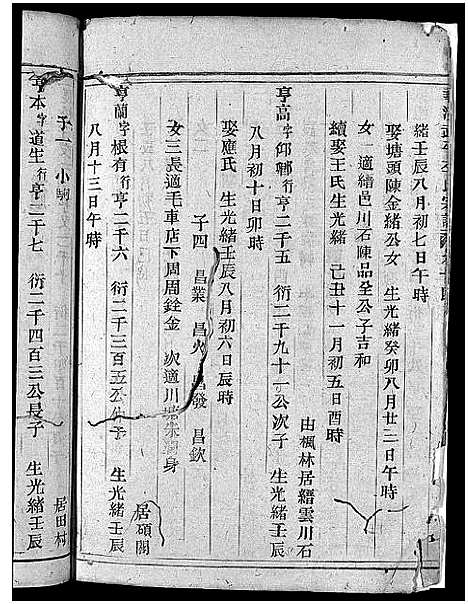 緒壬辰八月初七日午時
娶塘頭陳金緒公女 生光緒癸卯八月廿二日午時
女一適緒邑川石陳品全公子吉和
續娶王氏生光緒 己丑十一月初五日酉時
由楓林居縉雲川石
亨高字仰鄉行亨二千五 衍二千九十一公次子 生光緒壬辰
八月初十日卯時
娶應氏 生光緒壬辰八月初六日辰時
子四 昌業 昌火 昌發 昌欽
女三長適毛車店下周周銓金 次適川 身
居碩閣
亨蘭字根有行亨二千六 衍二千三百五公 子 生光緒壬辰
八月十三日午時
子一 小
居田村
亨本字道生行亨二千七 衍二千四百三公長子 生光緒壬辰